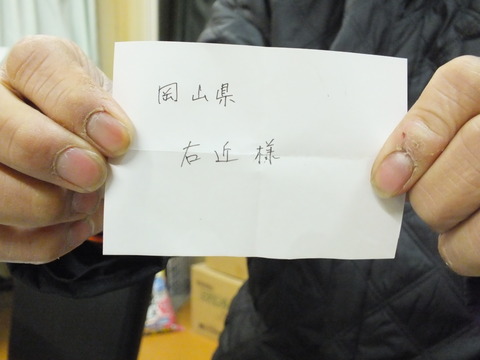 岡山県
右近様